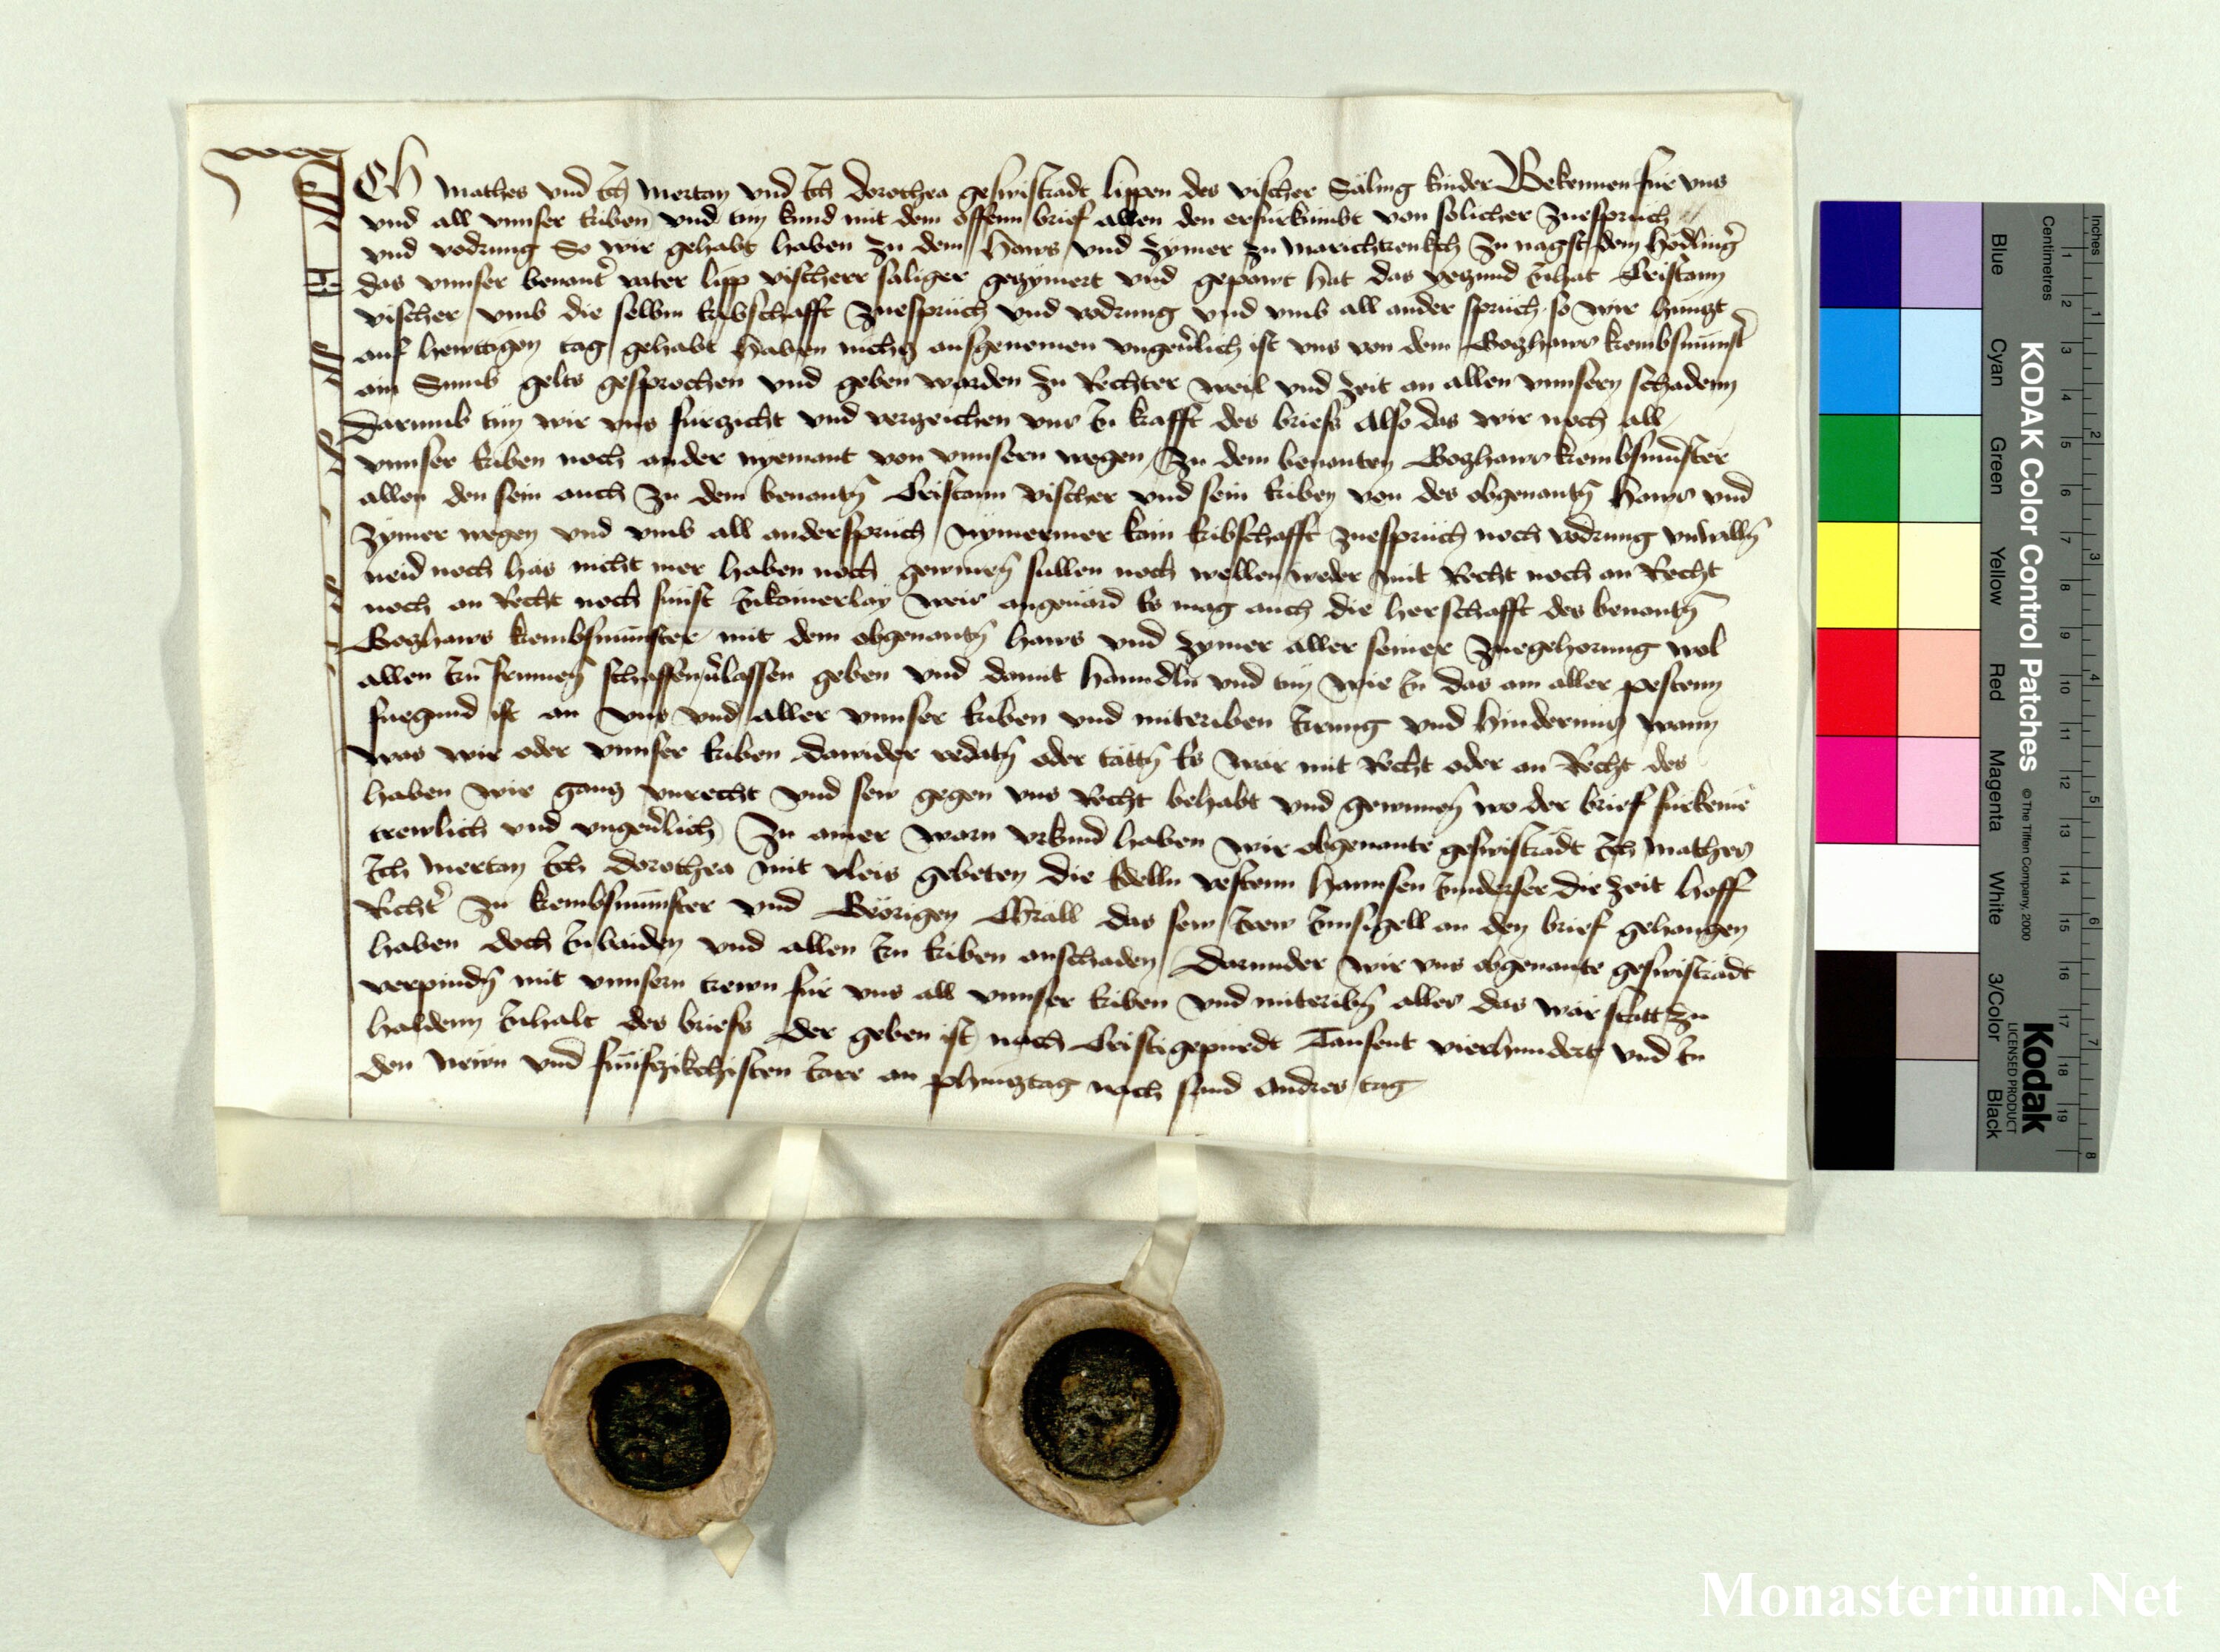 ICh Mathes vnd Ich Mertan vnd Ich dorothea geswistradt lippen des vischer Säling kinder Bekennen für vns
vnd all vnnser Eriben vnd tun kund mit dem offenn brief allen den er fürkümbt von solicher Zuesprüch
vnd vodrung So wir gehabt haben zu dem Haws vnd Zymer zu Marichtrenkch Zu nagst dem
das vnnser benant vater lipp vischerr säliger gezymert vnd gepawt hat das yeczund Inhat Cristann
vischer vmb die selbm Eribschafft Zuesprüch vnd vodrung vnd vmb all ander sprüch so wir hüncz
auf hewttigen tag gehabt haben nichcz ausgenomen vngeuerlich ist vns von dem Goczhaws krembsmünster
ain Summ gelts gesprochen vnd geben warden Zu Rechter weil vnd Zeit an allen vnnsern schadenn
Darumb tun wir vns fürzicht vnd verzeichen vns In krafft des briefs Also das wir noch all
vnnser Eriben noch ander nyemant von vnnsern wegen Zu dem benanten Goczhaws krembsmünster
allen den sein auch Zu dem benantn Cristann vischer vnd sein Eriben von des obgenantn Haws vnd
Zymer wegen vnd vmb all andersprüch Nymermer kain Eribschafft Zuesprüch noch vodrung vnwilln
neid noch has nicht mer haben noch gewinen sullen noch wellen weder mit Recht noch an Recht
noch an Recht noch sünst Inkainerlay weis angeuärd Es mag auch die herschafft des benantn
Goczhaws krembsmünster mit dem obgenantn haws vnd Zymer aller seiner Zuegehorung wol
allen irn frumen schaffen verlassen geben vnd damit hanndln vnd tun wie In das am aller pestenn
fuegund ist an vns vnd aller vnnser Eriben vnd miteriben Irrung vnd hinderung wann
was wir oder vnnser Eriben dawider redatn oder tättn Es wär mit Recht oder an Recht des
haben wir gancz vnrecht vnd sew gegen vns Recht behabt vnd gewunen wo der brief fürkeme
trewlich vnd vngeuerlich Zu ainer warn vrkund haben wir obgenante geswistradt Ich Mathes
Ich Mertan Ich dorothea mit vleis gebeten die Edelln vestenn Hannsen die Zeit hoff
Richter Zu krembsmünster vnd Görigen das sew Irew Innsigell an den brief gehangen
haben doch In baiden vnd allen Irn Eriben anschaden Darunder wir vns obgenante geswistradt
verpindn mit vnnsern trewn für vns all vnnser Eriben vnd miteribn alles das wär statt zu
haldenn Inhalt des briefs Der geben ist nach Cristi gepurdt Tausent vierhundert vnd In
den Newn vnd fünfczikchisten Jare an phincztag nach sand Andres tag
KODAK Color Control Patches
© The Tiffen Company, 2000
Kodak
LICENSED PRODUCT
Inches
Centimetres
1 2 3 4 5 6 7 8
1 2 3 4 5 6 7 8 9 10 11 12 13 14 15 16 17 18 19
Blue
Cyan
Green
Yellow
Red
Magenta
White
3/Color
Black
Monasterium.Net